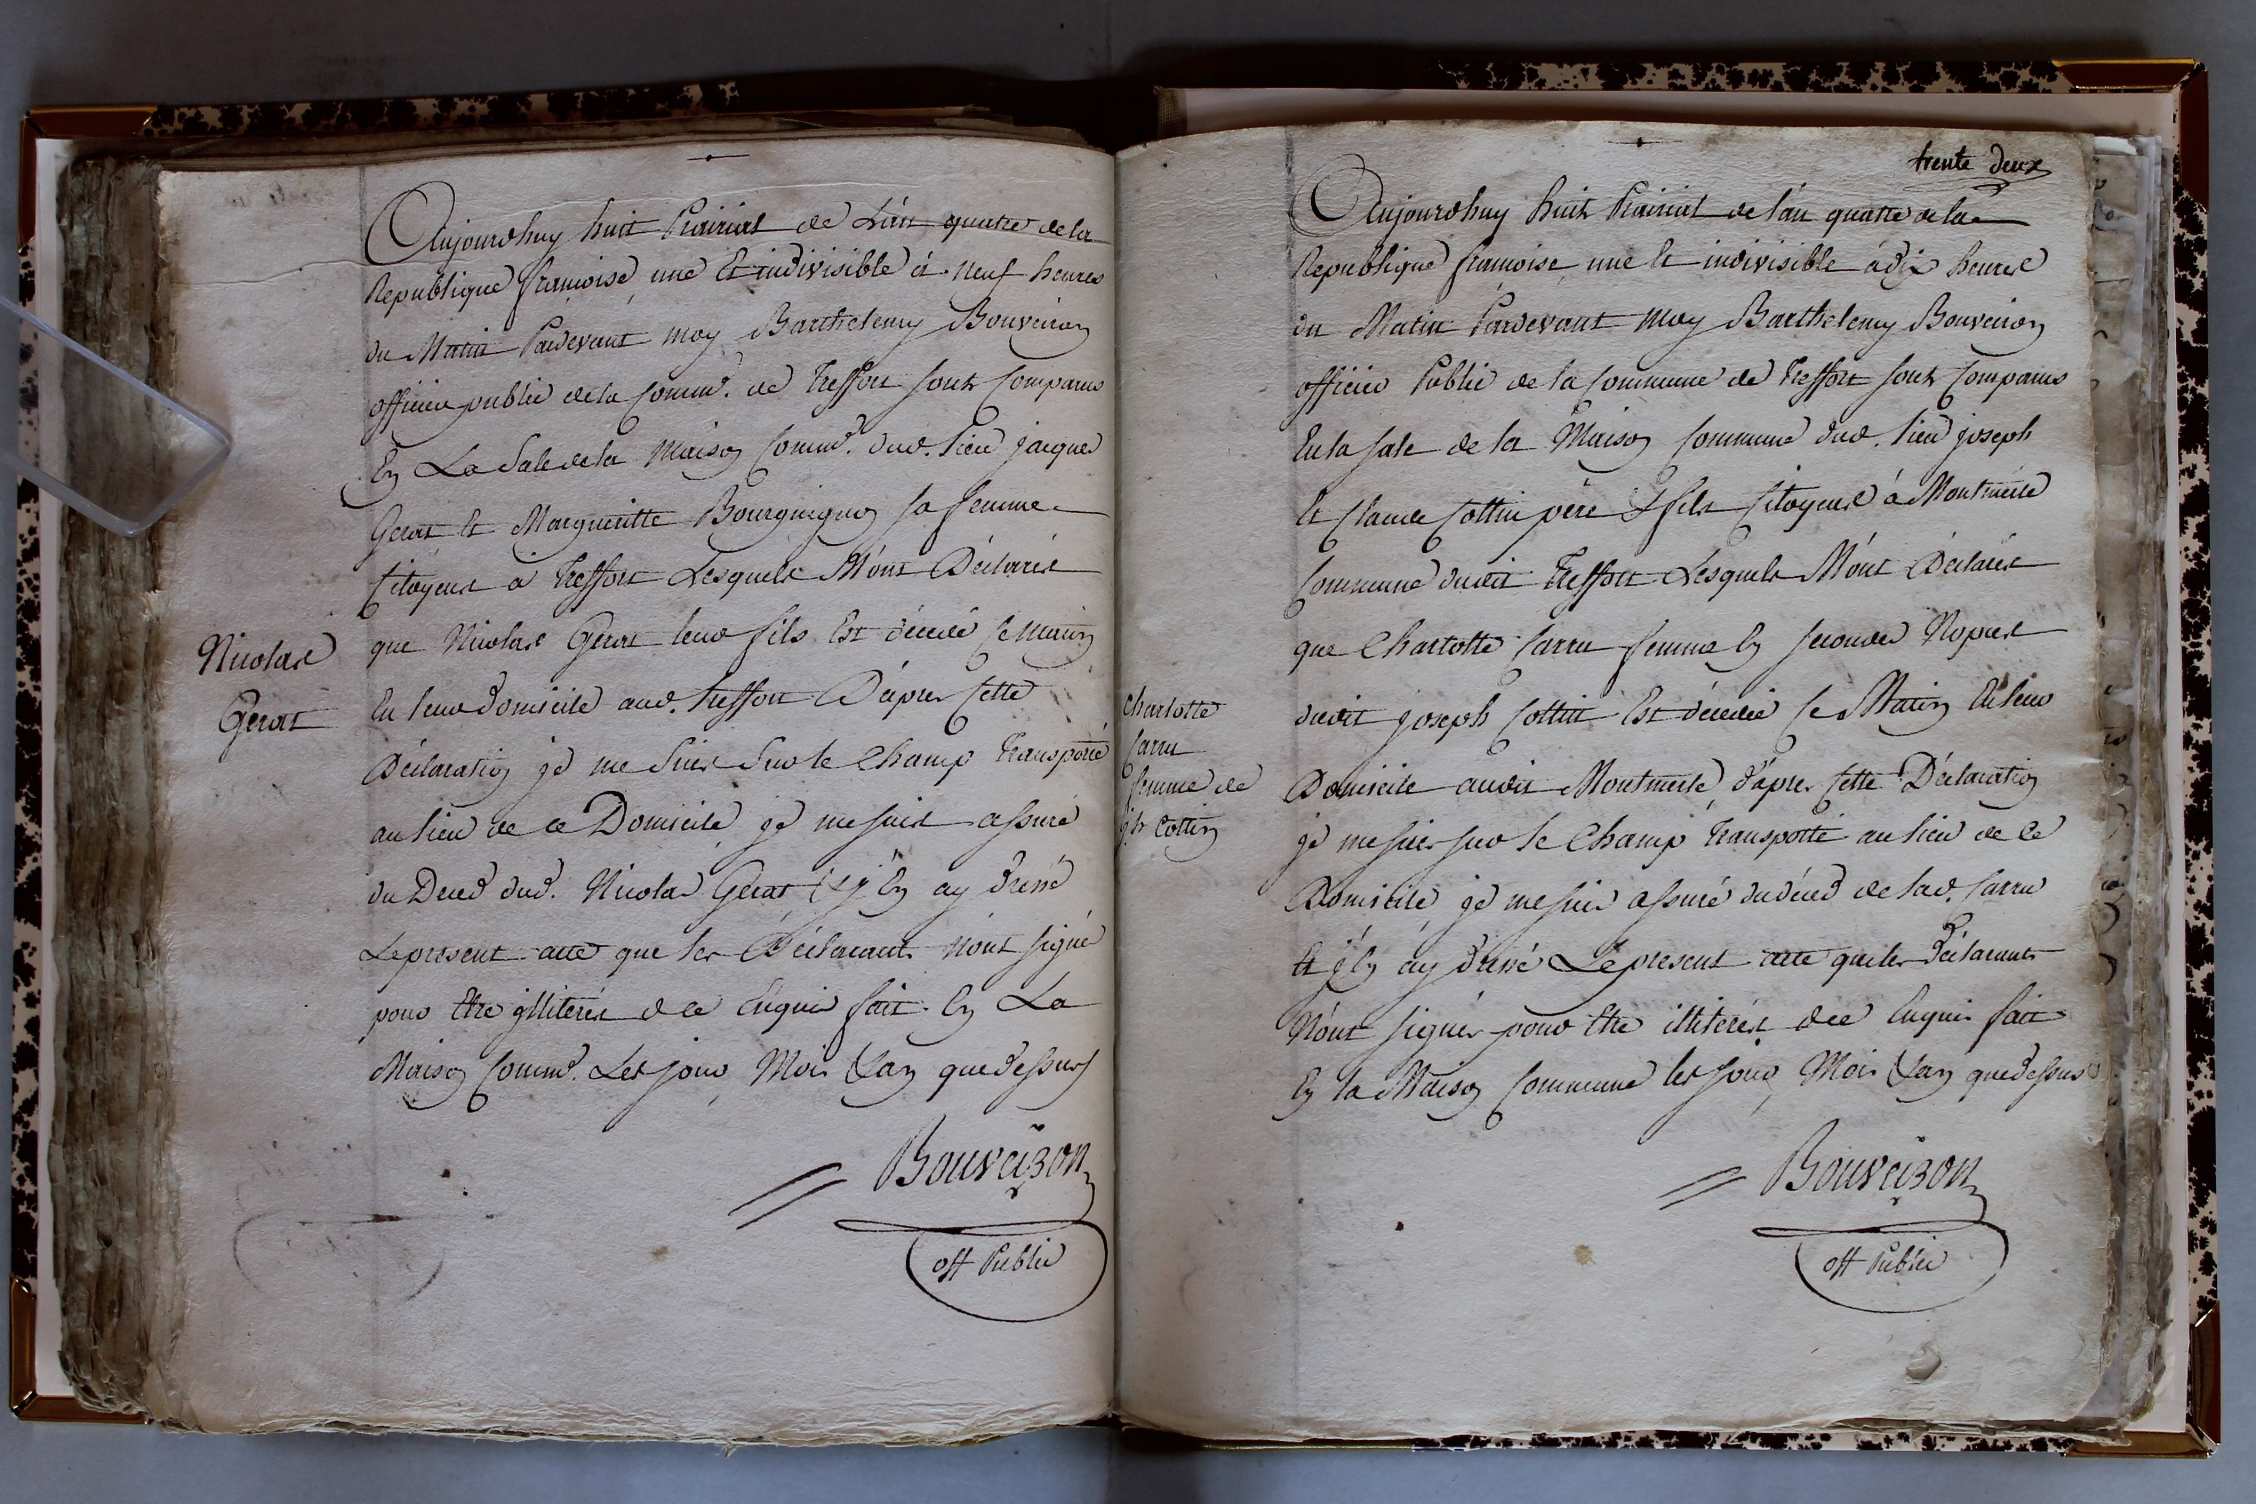 Aujourdhuy huit Prairial de L'an quatre de la
Republique françoise une Et indivisible à neuf heures
du Matin Pardevant moy Barthelemy Bouveiron
officier public de la Comm.e de Treffort sont Comparus
En La Sale de la Maison Comm.e dud. lieu jacques
Gerat Et Margueritte Bourguignon sa femme
Citoyens à Treffort Lesquels M'ont Déclarés
que Nicolas Gerat leur fils Est décedé Ce Matin
En leur domicile aud. Treffort D'après Cette
Déclaration je me Suis Sur le Champ Transporté
au lieu de ce Domicile je me suis assuré
du Deced dud. Nicolas Gerat & j'En ay dressé
Le present acte que les Déclarants n'ont signé
pour Etre illiterés de ce Enquis fait En La
Maison Comm.e Les jour Mois & an que dessus
Bouveiron
off Public
Nicolas
Gerat
trente deux
Aujourdhuy huit Prairial de l'an quatre de la
Republique françoise une Et indivisible à dix heures
du Matin Pardevant Moy Barthelemy Bouveiron
officier Public de la Commune de Treffort sont Comparus
En la sale de la Maison Commune dud. lieu joseph
Et Claude Cottin père & fils Citoyens à Montmerle
Commune dudit Treffort Lesquels M'ont Déclarés
que Charlotte Carru femme En secondes Nopces
dudit joseph Cottin Est décedée Ce Matin En leur
Domicile audit Montmerle, d'après Cette Déclaration
je me suis sur le Champ Transporté au lieu de Ce
Domicile je me suis assuré du déced de lad. Carru
Et j'En ay dressé Le present acte que les déclarants
N'ont signés pour Etre illiterés de ce Enquis fait
En la Maison Commune les jour Mois & an que dessus
Bouveiron
off Public
Charlotte
Carru
femme de
j.h Cottin